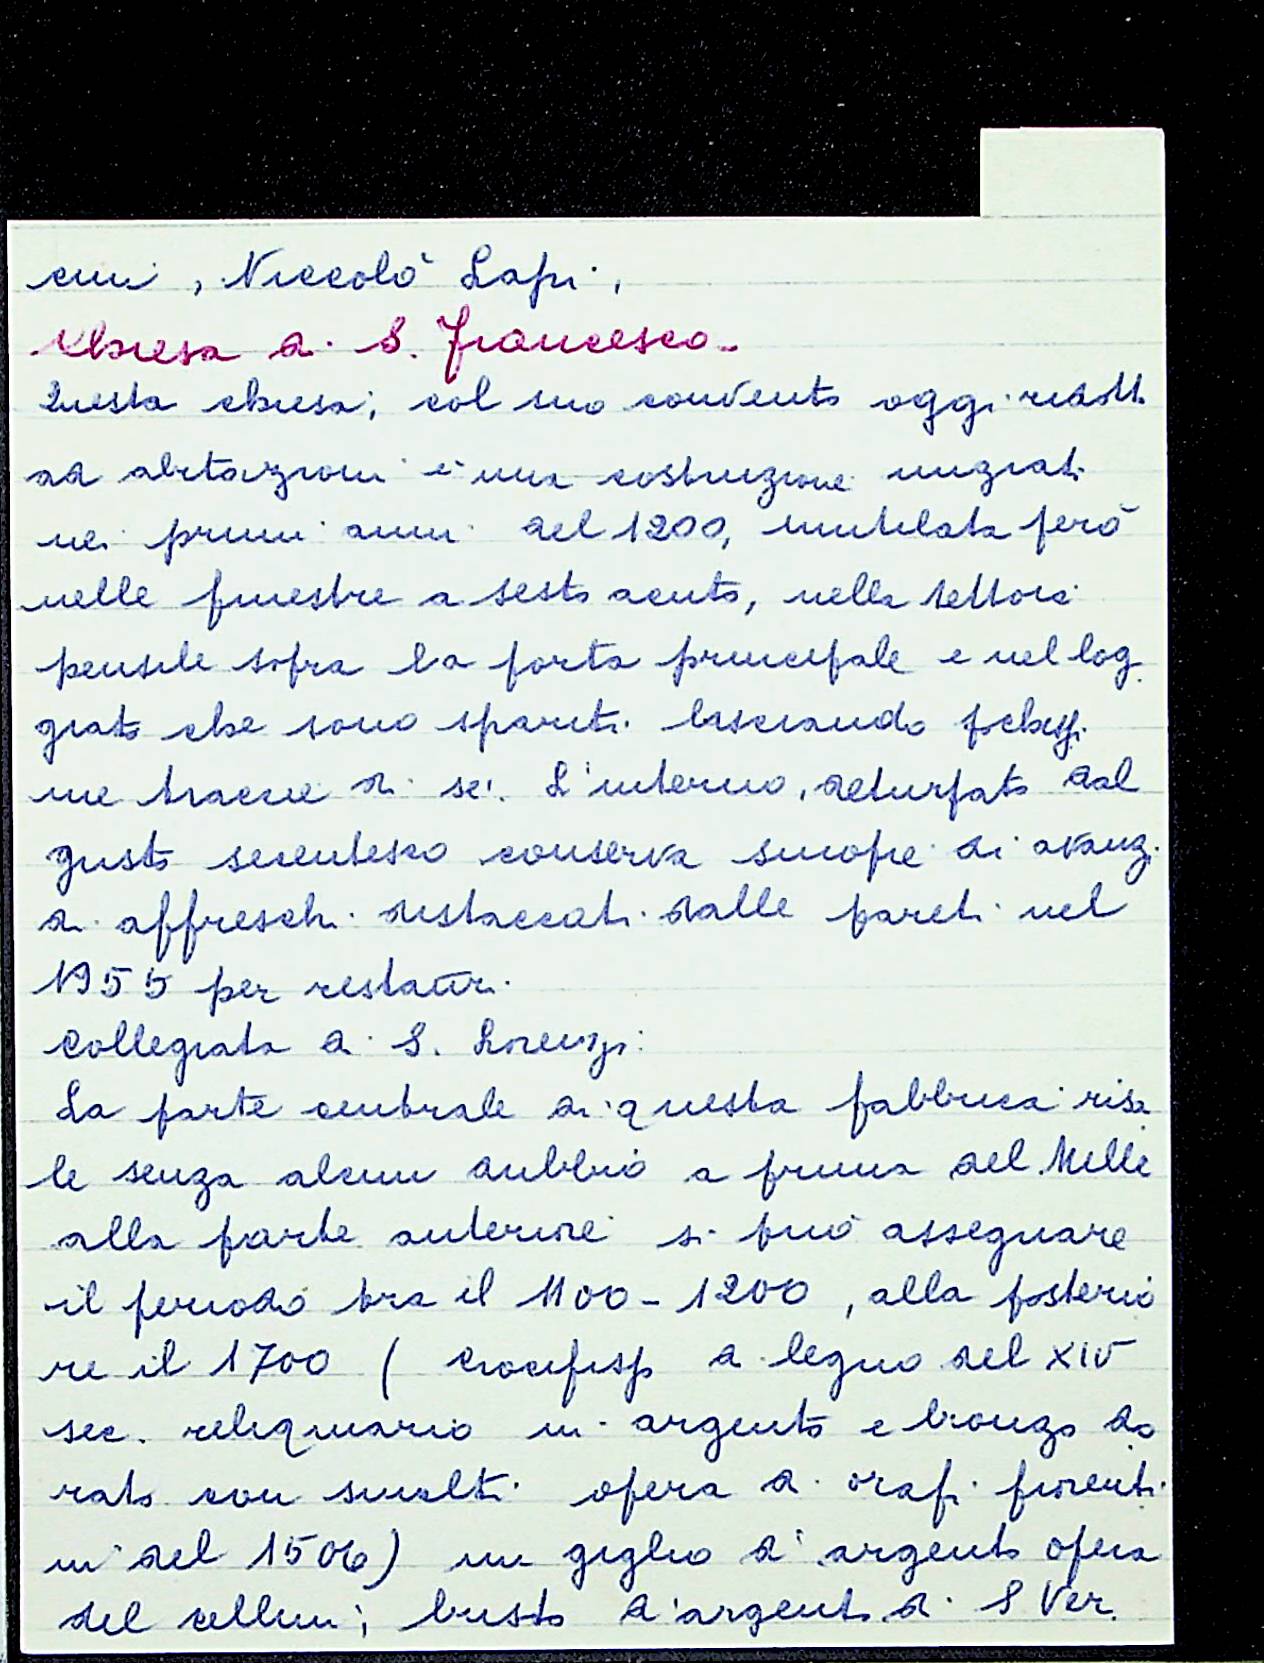 cini, Niccolò Lapi,
Chiesa di S. Francesco.
Questa chiesa, col suo convento oggi ridott.
ad abitazioni è una costruzione iniziat.
nei primi anni del 1200, mutilata però
nelle finestre a sesto acuto, nella tettoia
pensile sopra la porta principale e nel log
giato che sono spariti lasciando pochissi
me tracce di sé. L'interno, deturpato dal
gusto secentesco conserva sinopie di avanzi
di affreschi distaccati dalle pareti nel
1955 per restauri.
Collegiata di S. Lorenzo:
La parte centrale di questa fabbrica risa
le senza alcun dubbio a prima del Mille
alla parte anteriore si può assegnare
il periodo tra il 1100-1200, alla posterio
re il 1700 ( Crocifisso di legno del XIV
sec. reliquiario in argento e bronzo do
rato con smalti opera di orafi fiorenti
ni del 1506) un giglio d'argento opera
del cellini; busto d'argento di S Ver.